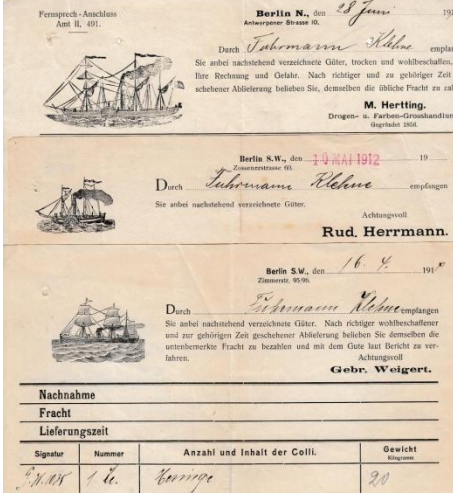 Fernsprech-Anschluss
Amt II, 491.
Berlin N., den 28 Juni 191
Antwerpener Strasse 10.
Durch Fuhrmann Klehne empfan
Sie anbei nachstehend verzeichnete Güter, trocken und wohlbeschaffen,
Ihre Rechnung und Gefahr. Nach richtiger und zu gehöriger Zeit
schehener Ablieferung belieben Sie, demselben die übliche Fracht zu zah
M. Hertting.
Drogen- u. Farben-Grosshandlun
Gegründet 1856.
Berlin S.W., den 10 MAI 1912 19
Zossenerstrasse 60.
Durch Fuhrmann Klehne empfangen
Sie anbei nachstehend verzeichnete Güter.
Achtungsvoll
Rud. Herrmann.
Berlin S.W., den 16. 4. 191
Zimmerstr. 95/96.
Durch Fuhrmann Klehne empfangen
Sie anbei nachstehend verzeichnete Güter. Nach richtiger wohlbeschaffener
und zur gehörigen Zeit geschehener Ablieferung belieben Sie demselben die
untenbemerkte Fracht zu bezahlen und mit dem Gute laut Bericht zu ver-
fahren. Achtungsvoll
Gebr. Weigert.
Nachnahme
Fracht
Lieferungszeit
Signatur Nummer Anzahl und Inhalt der Colli. Gewicht
Kilogramm
1 20